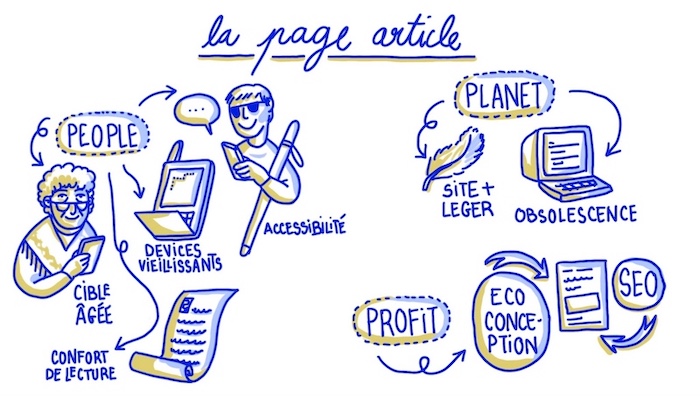 la page article
PEOPLE
...
CIBLE
ÂGÉE
DEVICES
VIEILLISSANTS
ACCESSIBILITÉ
CONFORT
DE LECTURE
PLANET
SITE +
LEGER
OBSOLESCENCE
PROFIT
ECO
CONCE-
PTION
SEO